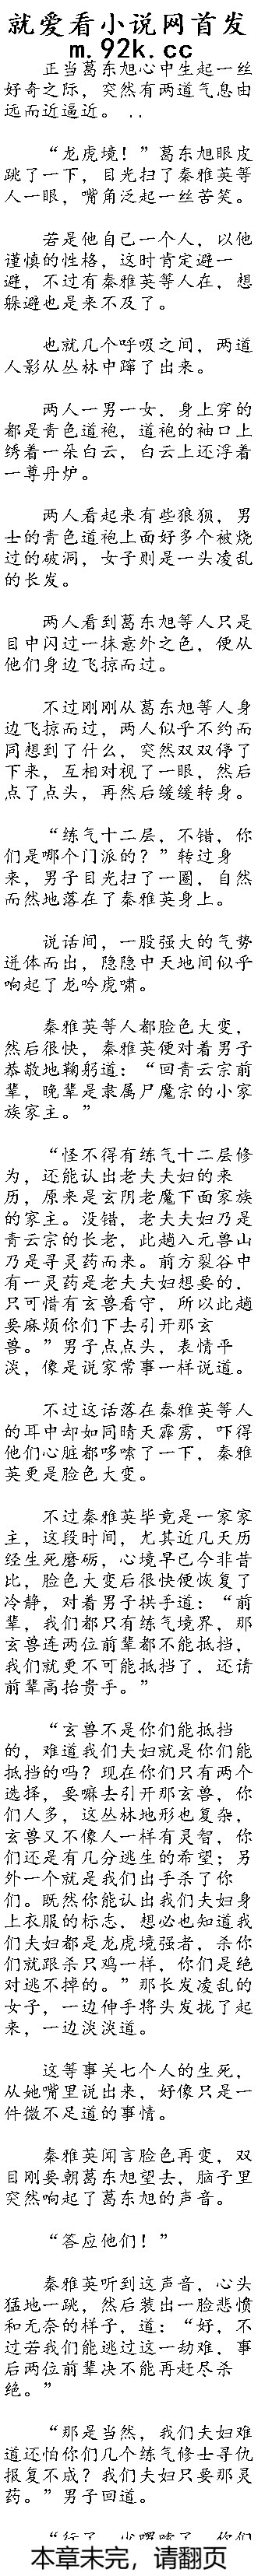 就爱看小说网首发
m.92k.cc
正当葛东旭心中生起一丝
好奇之际，突然有两道气息由
远而近逼近。 ..
“龙虎境！”葛东旭眼皮
跳了一下，目光扫了秦雅英等
人一眼，嘴角泛起一丝苦笑。
若是他自己一个人，以他
谨慎的性格，这时肯定避一
避，不过有秦雅英等人在，想
躲避也是来不及了。
也就几个呼吸之间，两道
人影从丛林中蹿了出来。
两人一男一女，身上穿的
都是青色道袍，道袍的袖口上
绣着一朵白云，白云上还浮着
一尊丹炉。
两人看起来有些狼狈，男
士的青色道袍上面好多个被烧
过的破洞，女子则是一头凌乱
的长发。
两人看到葛东旭等人只是
目中闪过一抹意外之色，便从
他们身边飞掠而过。
不过刚刚从葛东旭等人身
边飞掠而过，两人似乎不约而
同想到了什么，突然双双停了
下来，互相对视了一眼，然后
点了点头，再然后缓缓转身。
“练气十二层，不错，你
们是哪个门派的？”转过身
来，男子目光扫了一圈，自然
而然地落在了秦雅英身上。
说话间，一股强大的气势
迸体而出，隐隐中天地间似乎
响起了龙吟虎啸。
秦雅英等人都脸色大变，
然后很快，秦雅英便对着男子
恭敬地鞠躬道：“回青云宗前
辈，晚辈是隶属尸魔宗的小家
族家主。”
“怪不得有练气十二层修
为，还能认出老夫夫妇的来
历，原来是玄阴老魔下面家族
的家主。没错，老夫夫妇乃是
青云宗的长老，此趟入元兽山
乃是寻灵药而来。前方裂谷中
有一灵药是老夫夫妇想要的，
只可惜有玄兽看守，所以此趟
要麻烦你们下去引开那玄
兽。”男子点点头，表情平
淡，像是说家常事一样说道。
不过这话落在秦雅英等人
的耳中却如同晴天霹雳，吓得
他们心脏都哆嗦了一下，秦雅
英更是脸色大变。
不过秦雅英毕竟是一家家
主，这段时间，尤其近几天历
经生死磨砺，心境早已今非昔
比，脸色大变后很快便恢复了
冷静，对着男子拱手道：“前
辈，我们都只有练气境界，那
玄兽连两位前辈都不能抵挡，
我们就更不可能抵挡了，还请
前辈高抬贵手。”
“玄兽不是你们能抵挡
的，难道我们夫妇就是你们能
抵挡的吗？现在你们只有两个
选择，要嘛去引开那玄兽，你
们人多，这丛林地形也复杂，
玄兽又不像人一样有灵智，你
们还是有几分逃生的希望；另
外一个就是我们出手杀了你
们。既然你能认出我们夫妇身
上衣服的标志，想必也知道我
们夫妇都是龙虎境强者，杀你
们就跟杀只鸡一样，你们是绝
对逃不掉的。”那长发凌乱的
女子，一边伸手将头发拢了起
来，一边淡淡道。
这等事关七个人的生死，
从她嘴里说出来，好像只是一
件微不足道的事情。
秦雅英闻言脸色再变，双
目刚要朝葛东旭望去，脑子里
突然响起了葛东旭的声音。
“答应他们！”
秦雅英听到这声音，心头
猛地一跳，然后装出一脸悲愤
和无奈的样子，道：“好，不
过若我们能逃过这一劫难，事
后两位前辈决不能再赶尽杀
绝。”
“那是当然，我们夫妇难
道还怕你们几个练气修士寻仇
报复不成？我们夫妇只要那灵
药。”男子回道。
“行了，少啰嗦了，你们
本章未完，请翻页